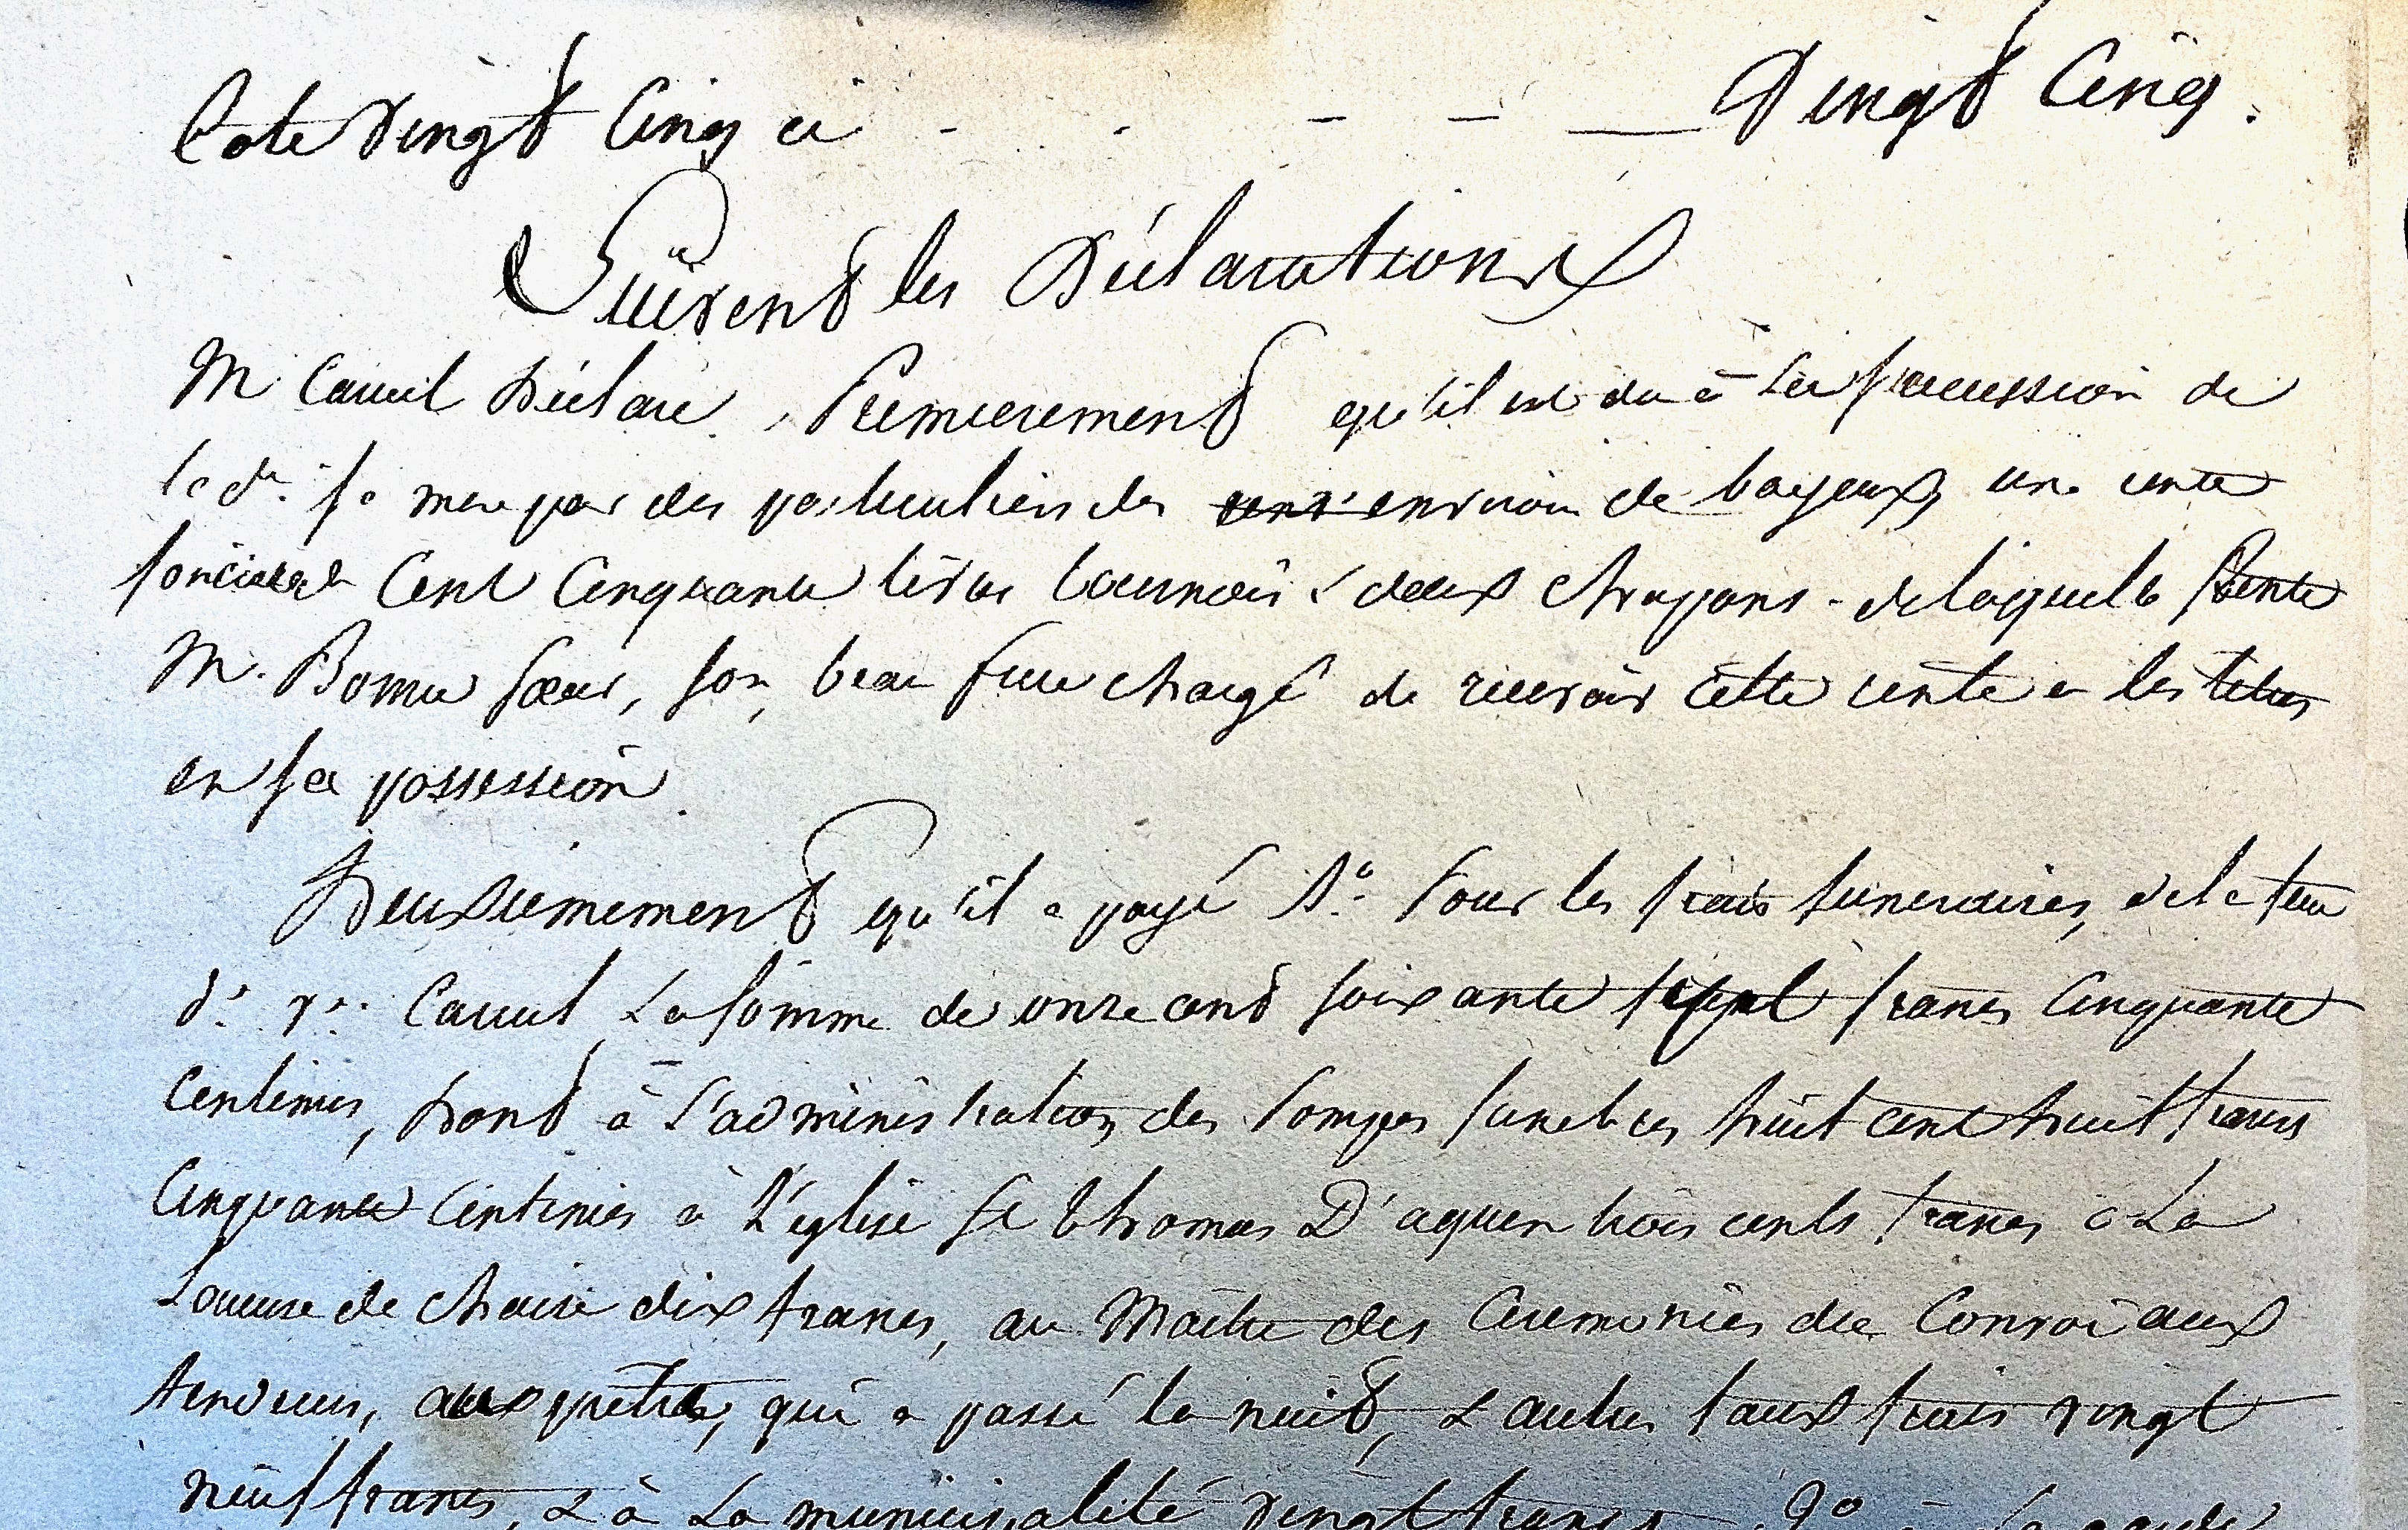 Cote Vingt Cinq ci - - - - — Vingt Cinq.
Suivent les Déclarations
M. Cauuet Déclare, Premierement qu'il est du à La succession de
la de. sa mere par des particuliers des environ de bayeux, une rente
fonciere de Cent Cinquante livres tournois & deux Chapons - de laquelle Rente
M. Bonne soeur, son beau frere chargé de recevoir cette rente a les titres
en sa possession.
Deuxiemement qu'il a payé 1o. Pour les frais funeraires, de la feue
de. ve. Cauuet La somme de onze cent soixante sept francs Cinquante
Centimes, Dont à L'administration des Pompes funebres huit cent huit francs
Cinquante Centimes à L'église St thomas D'aquin trois cents francs à La
Loueuse de Chaise dix francs, au Maitre des Ceremonies du Convoi aux
tendeurs, aux prêtres, qui a passé la nuit, & autres faux frais vingt
neuf francs, & à La municipalité Vingt francs 2o à La garde